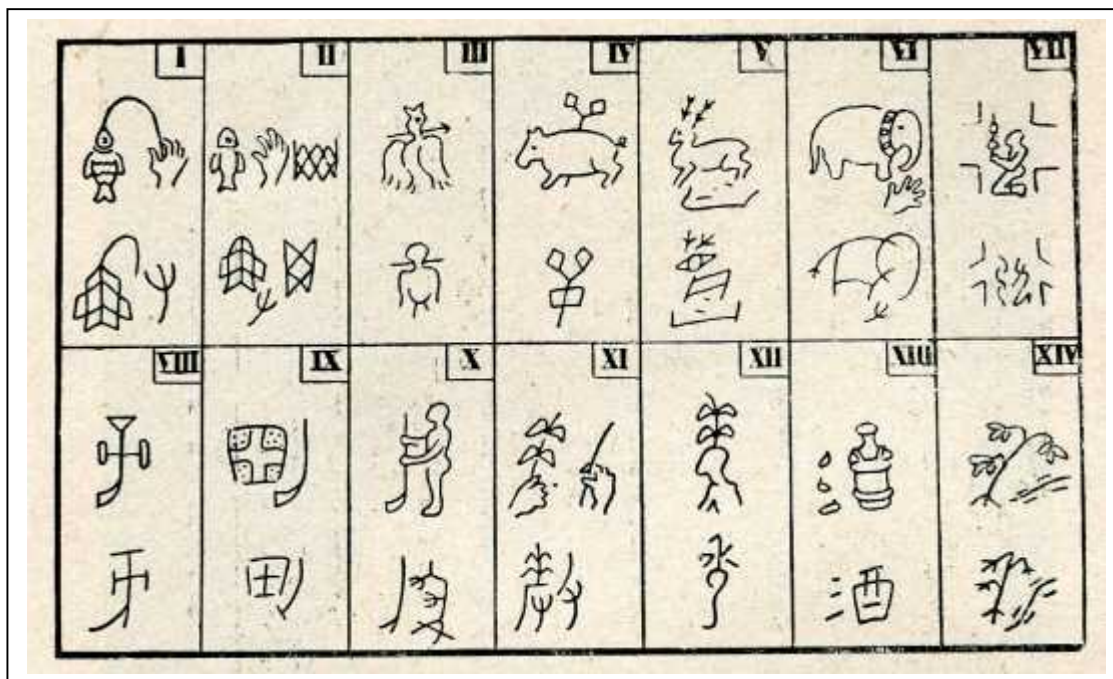 I II III IV V VI VII
VIII IX X XI XII XIII XIV